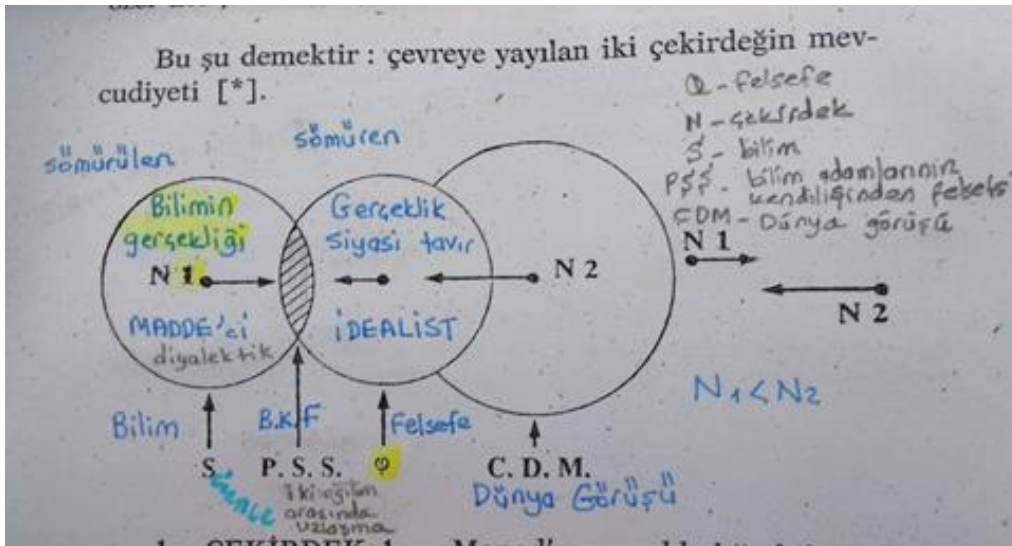 Bu şu demektir : çevreye yayılan iki çekirdeğin mev-
cudiyeti [*].
φ - felsefe
N - çekirdek
S - bilim
PSS - bilim adamlarının
kendiliğinden felsefesi
CDM - Dünya görüşü
sömürülen
sömüren
Bilimin
gerçekliği
N 1
MADDE'ci
diyalektik
Gerçeklik
siyasi tavır
İDEALİST
N 2
N 1
N 2
N1 < N2
Bilim
B.K.F
Felsefe
S.
P. S. S.
φ
C. D. M.
iki eğilim
arasında
uzlaşma
Dünya Görüşü
1. ÇEKİRDEK 1